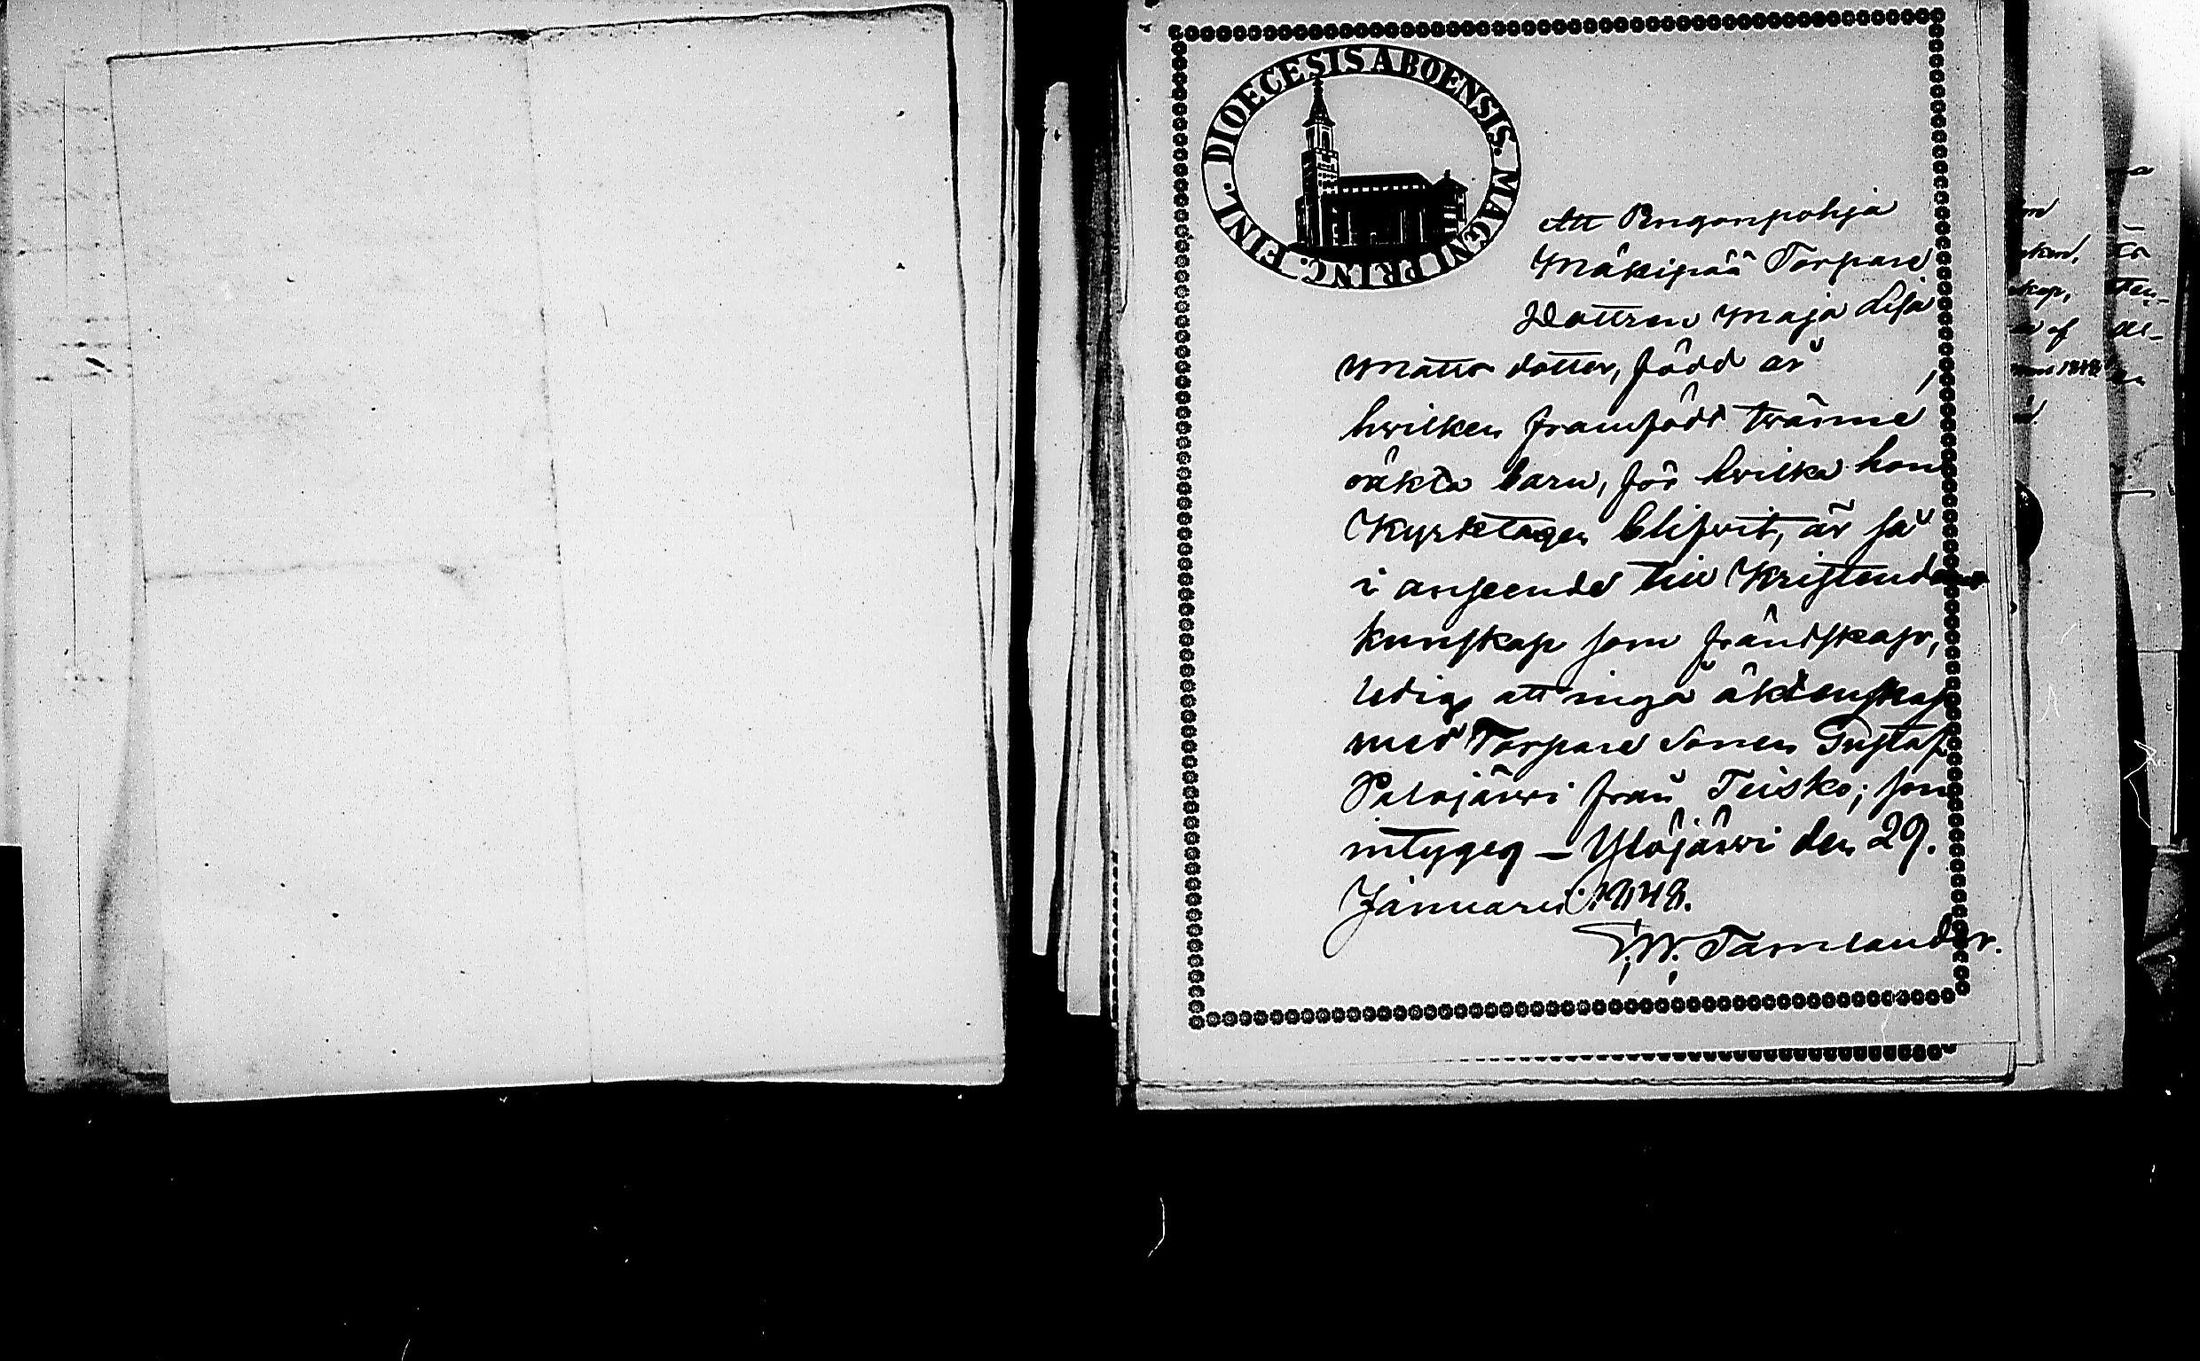 DIOECESIS ABOENSIS. MAGNI PRINC. FINL.
Att Pengonpohja
Mäkipää Torpare
Dottren Maja Lisa
Matts dotter, född år
hvilken framfödt tvänne
oäkta barn, för hvilka hon
Kyrktagen blifvit, är så
i anseende till Kristendoms
kunskap som frändskap,
ledig att ingå äktenskap
med Torpare Sonen Gustaf
Palojärvi från Teisko; som
intygeg – Ylöjärvi den 29.
Januari 1848.
Tamlander.